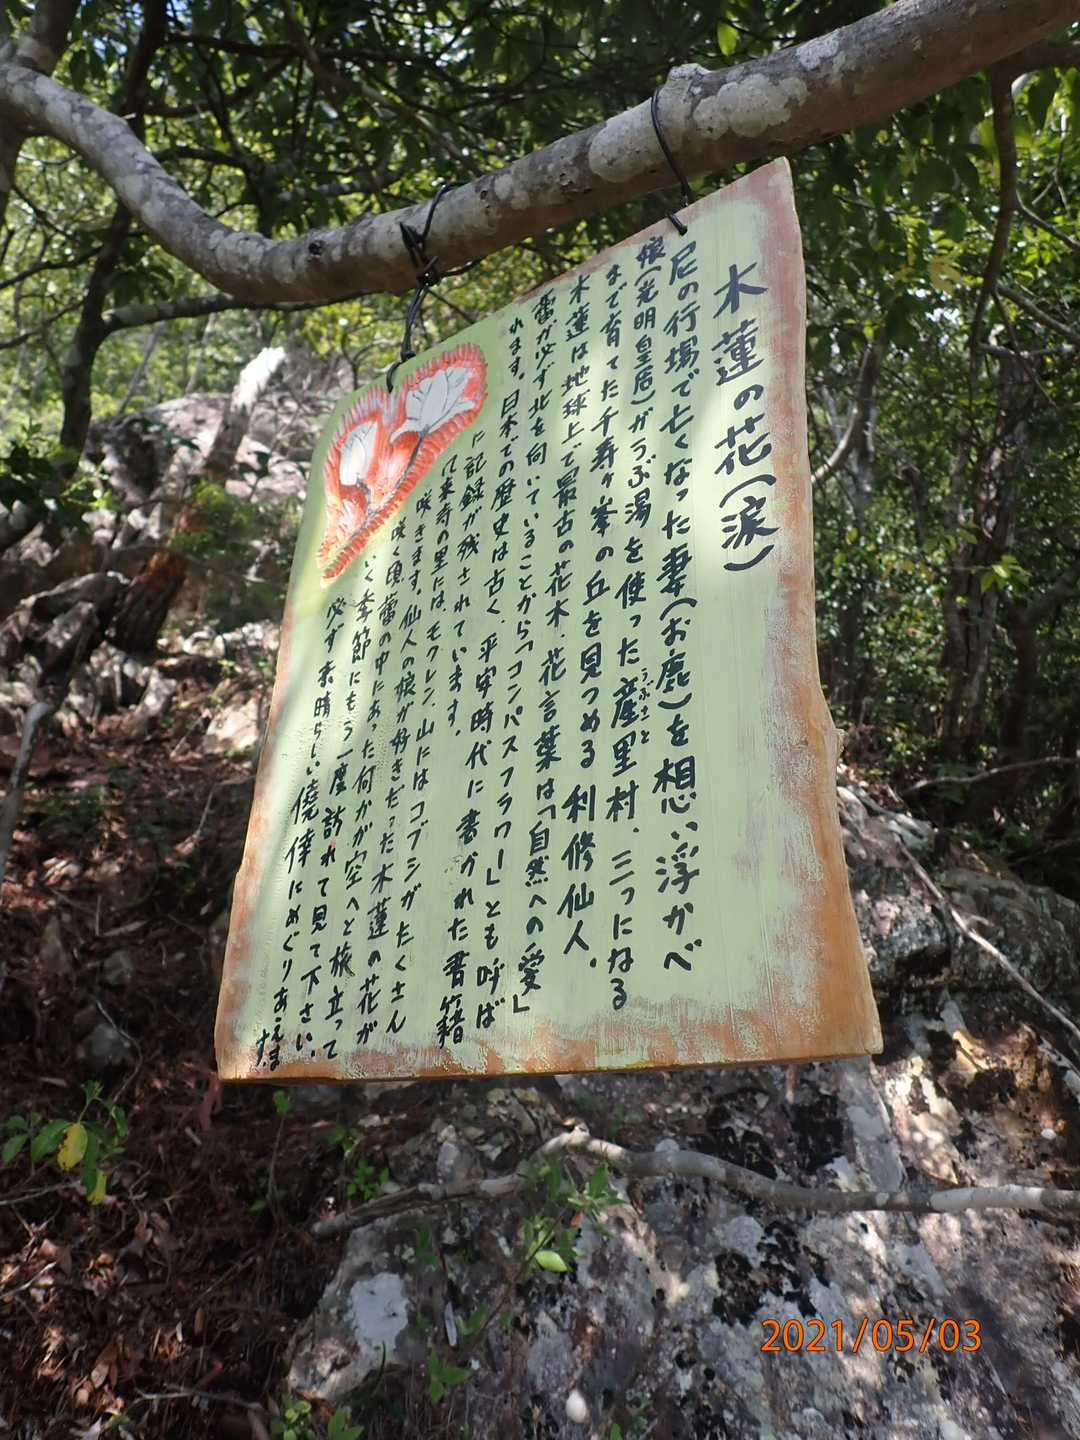 木蓮の花(涙)
尼の行場で亡くなった妻(お鹿)を想い浮かべ
娘(光明皇后)がうぶ湯を使った産里村、三つになる
うぶさと
まで育てた千寿ヶ峯の丘を見つめる利修仙人。
木蓮は地球上で最古の花木、花言葉は「自然への愛」
蕾が必ず北を向いていることから「コンパスフラワー」とも呼ば
れます。日本での歴史は古く、平安時代に書かれた書籍
に記録が残されています。
来寺の里には、モクレン、山にはコブシがたくさん
咲きます。仙人の娘が好きだった木蓮の花が
咲く頃蕾の中にあった何かが空へと旅立って
いく季節にもう一度訪れて見て下さい、
必ず素晴らしい僥倖にめぐりあえま
す。
2021/05/03